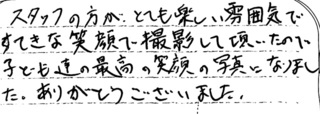 スタッフの方が、とても楽しい雰囲気で
すてきな笑顔で撮影して頂いたので
子ども達の最高の笑顔の写真になりまし
た。ありがとうございました。